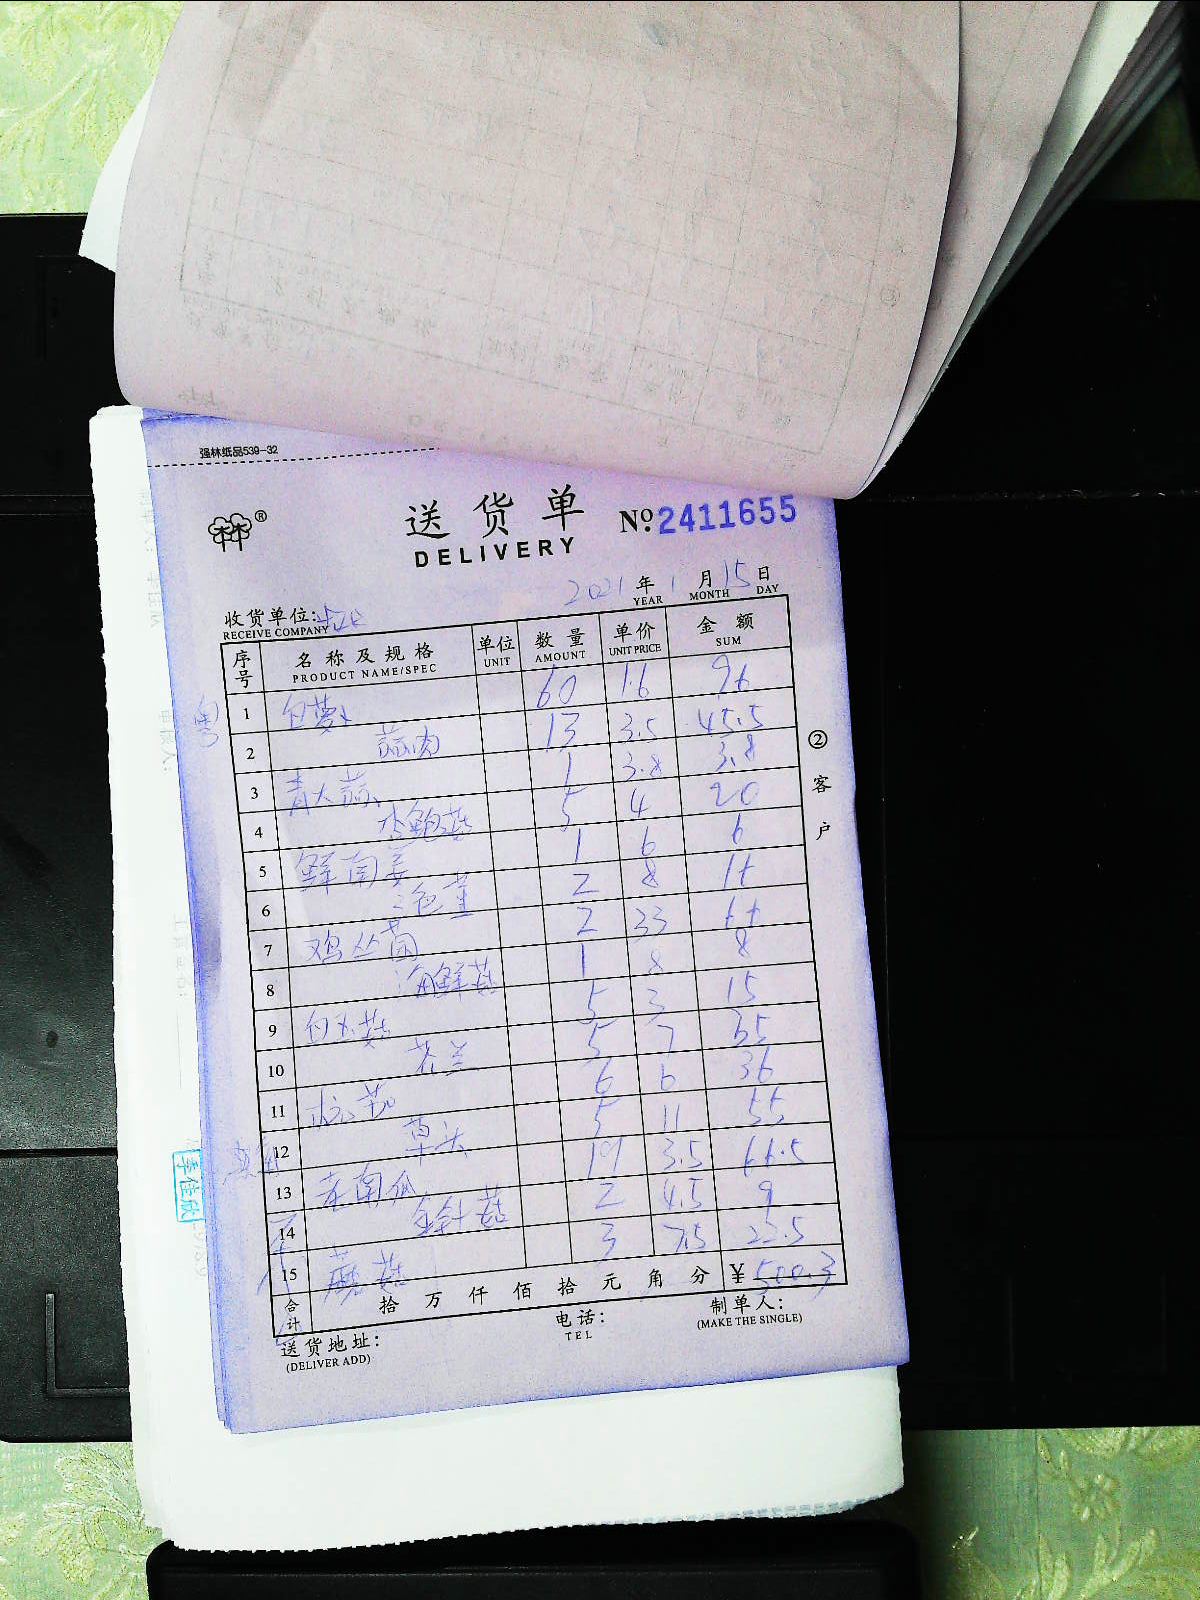 强林纸品539-32
送货单
DELIVERY
№ 2411655
2021年1月15日
YEAR MONTH DAY
收货单位:
RECEIVE COMPANY
序号 名称及规格 单位 数量 单价 金额
PRODUCT NAME/SPEC UNIT AMOUNT UNIT PRICE SUM
1 白萝卜 60 1.6 96
2 蒜肉 13 3.5 45.5
3 青大蒜 1 3.8 3.8
4 杏鲍菇 5 4 20
5 鲜南姜 1 6 6
6 三色堇 2 8 16
7 鸡丛菌 2 33 66
8 海鲜菇 1 8 8
9 白玉菇 5 3 15
10 芥兰 5 7 35
11 茄 6 6 36
12 草头 5 11 55
13 老南瓜 19 3.5 66.5
14 金针菇 2 4.5 9
15 蘑菇 3 7.5 22.5
合计 拾 万 仟 佰 拾 元 角 分 ¥ 500.3
送货地址:
(DELIVER ADD)
电话:
TEL
制单人:
(MAKE THE SINGLE)
②客户
李佳欣